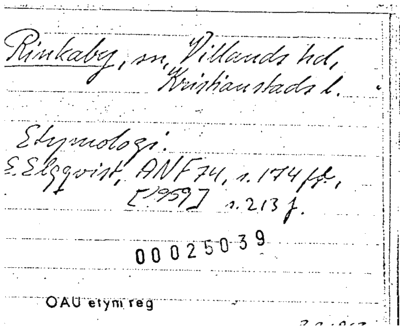 Rinkaby, sn, Villands hd,
Kristianstads l.
Etymologi.
E. Elgqvist, ANF 74, s. 174 ff.,
[1959] s. 213 f.
00025039
OAU etym reg